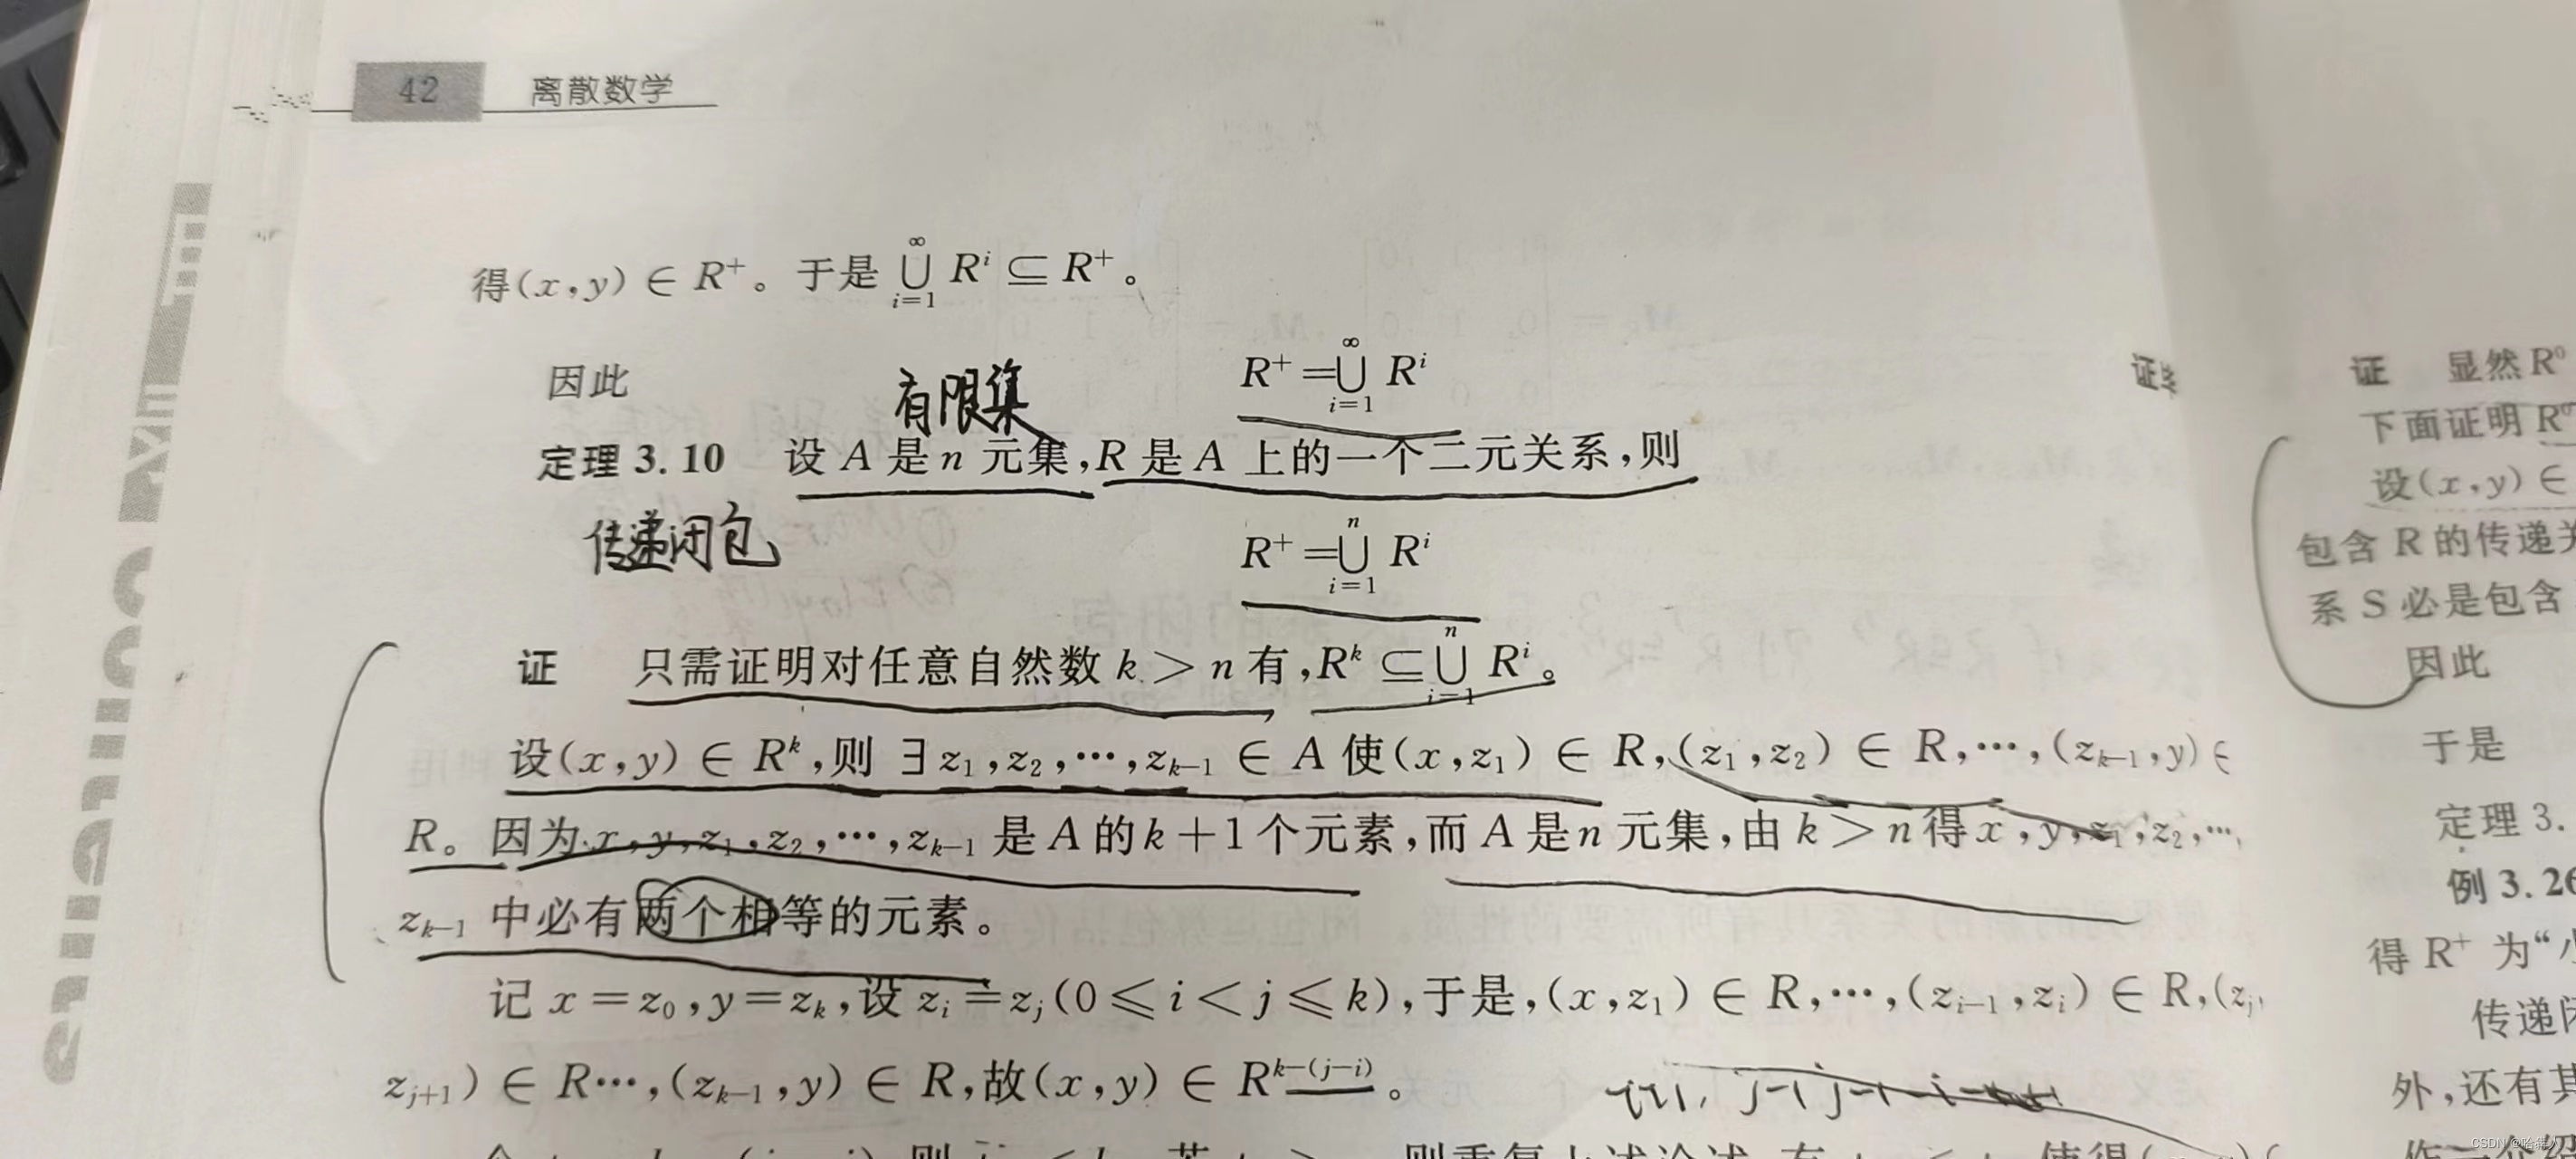 42 离散数学
得(x,y) ∈ R⁺。于是 ⋃_{i=1}^{∞} Rⁱ ⊆ R⁺。
因此 R⁺ = ⋃_{i=1}^{∞} Rⁱ
有限集
定理 3.10 设 A 是 n 元集,R 是 A 上的一个二元关系,则
传递闭包
R⁺ = ⋃_{i=1}^{n} Rⁱ
证 只需证明对任意自然数 k > n 有,Rᵏ ⊆ ⋃_{i=1}^{n} Rⁱ。
设(x,y) ∈ Rᵏ,则 ∃ z₁,z₂,…,z_{k-1} ∈ A 使(x,z₁) ∈ R,(z₁,z₂) ∈ R,…,(z_{k-1},y) ∈
R。因为 x,y,z₁,z₂,…,z_{k-1} 是 A 的 k+1 个元素,而 A 是 n 元集,由 k > n 得 x,y,z₁,z₂,…,
z_{k-1} 中必有两个相等的元素。
记 x = z₀,y = z_k,设 z_i = z_j (0 ⩽ i < j ⩽ k),于是,(x,z₁) ∈ R,…,(z_{i-1},z_i) ∈ R,(z_j,
z_{j+1}) ∈ R…,(z_{k-1},y) ∈ R,故(x,y) ∈ R^{k-(j-i)}。
证 显然 R⁰
下面证明 R⁰
设(x,y) ∈
包含 R 的传递关
系 S 必是包含
因此
于是
定理 3.
例 3.26
得 R⁺ 为“小
传递闭
外,还有其
CSDN